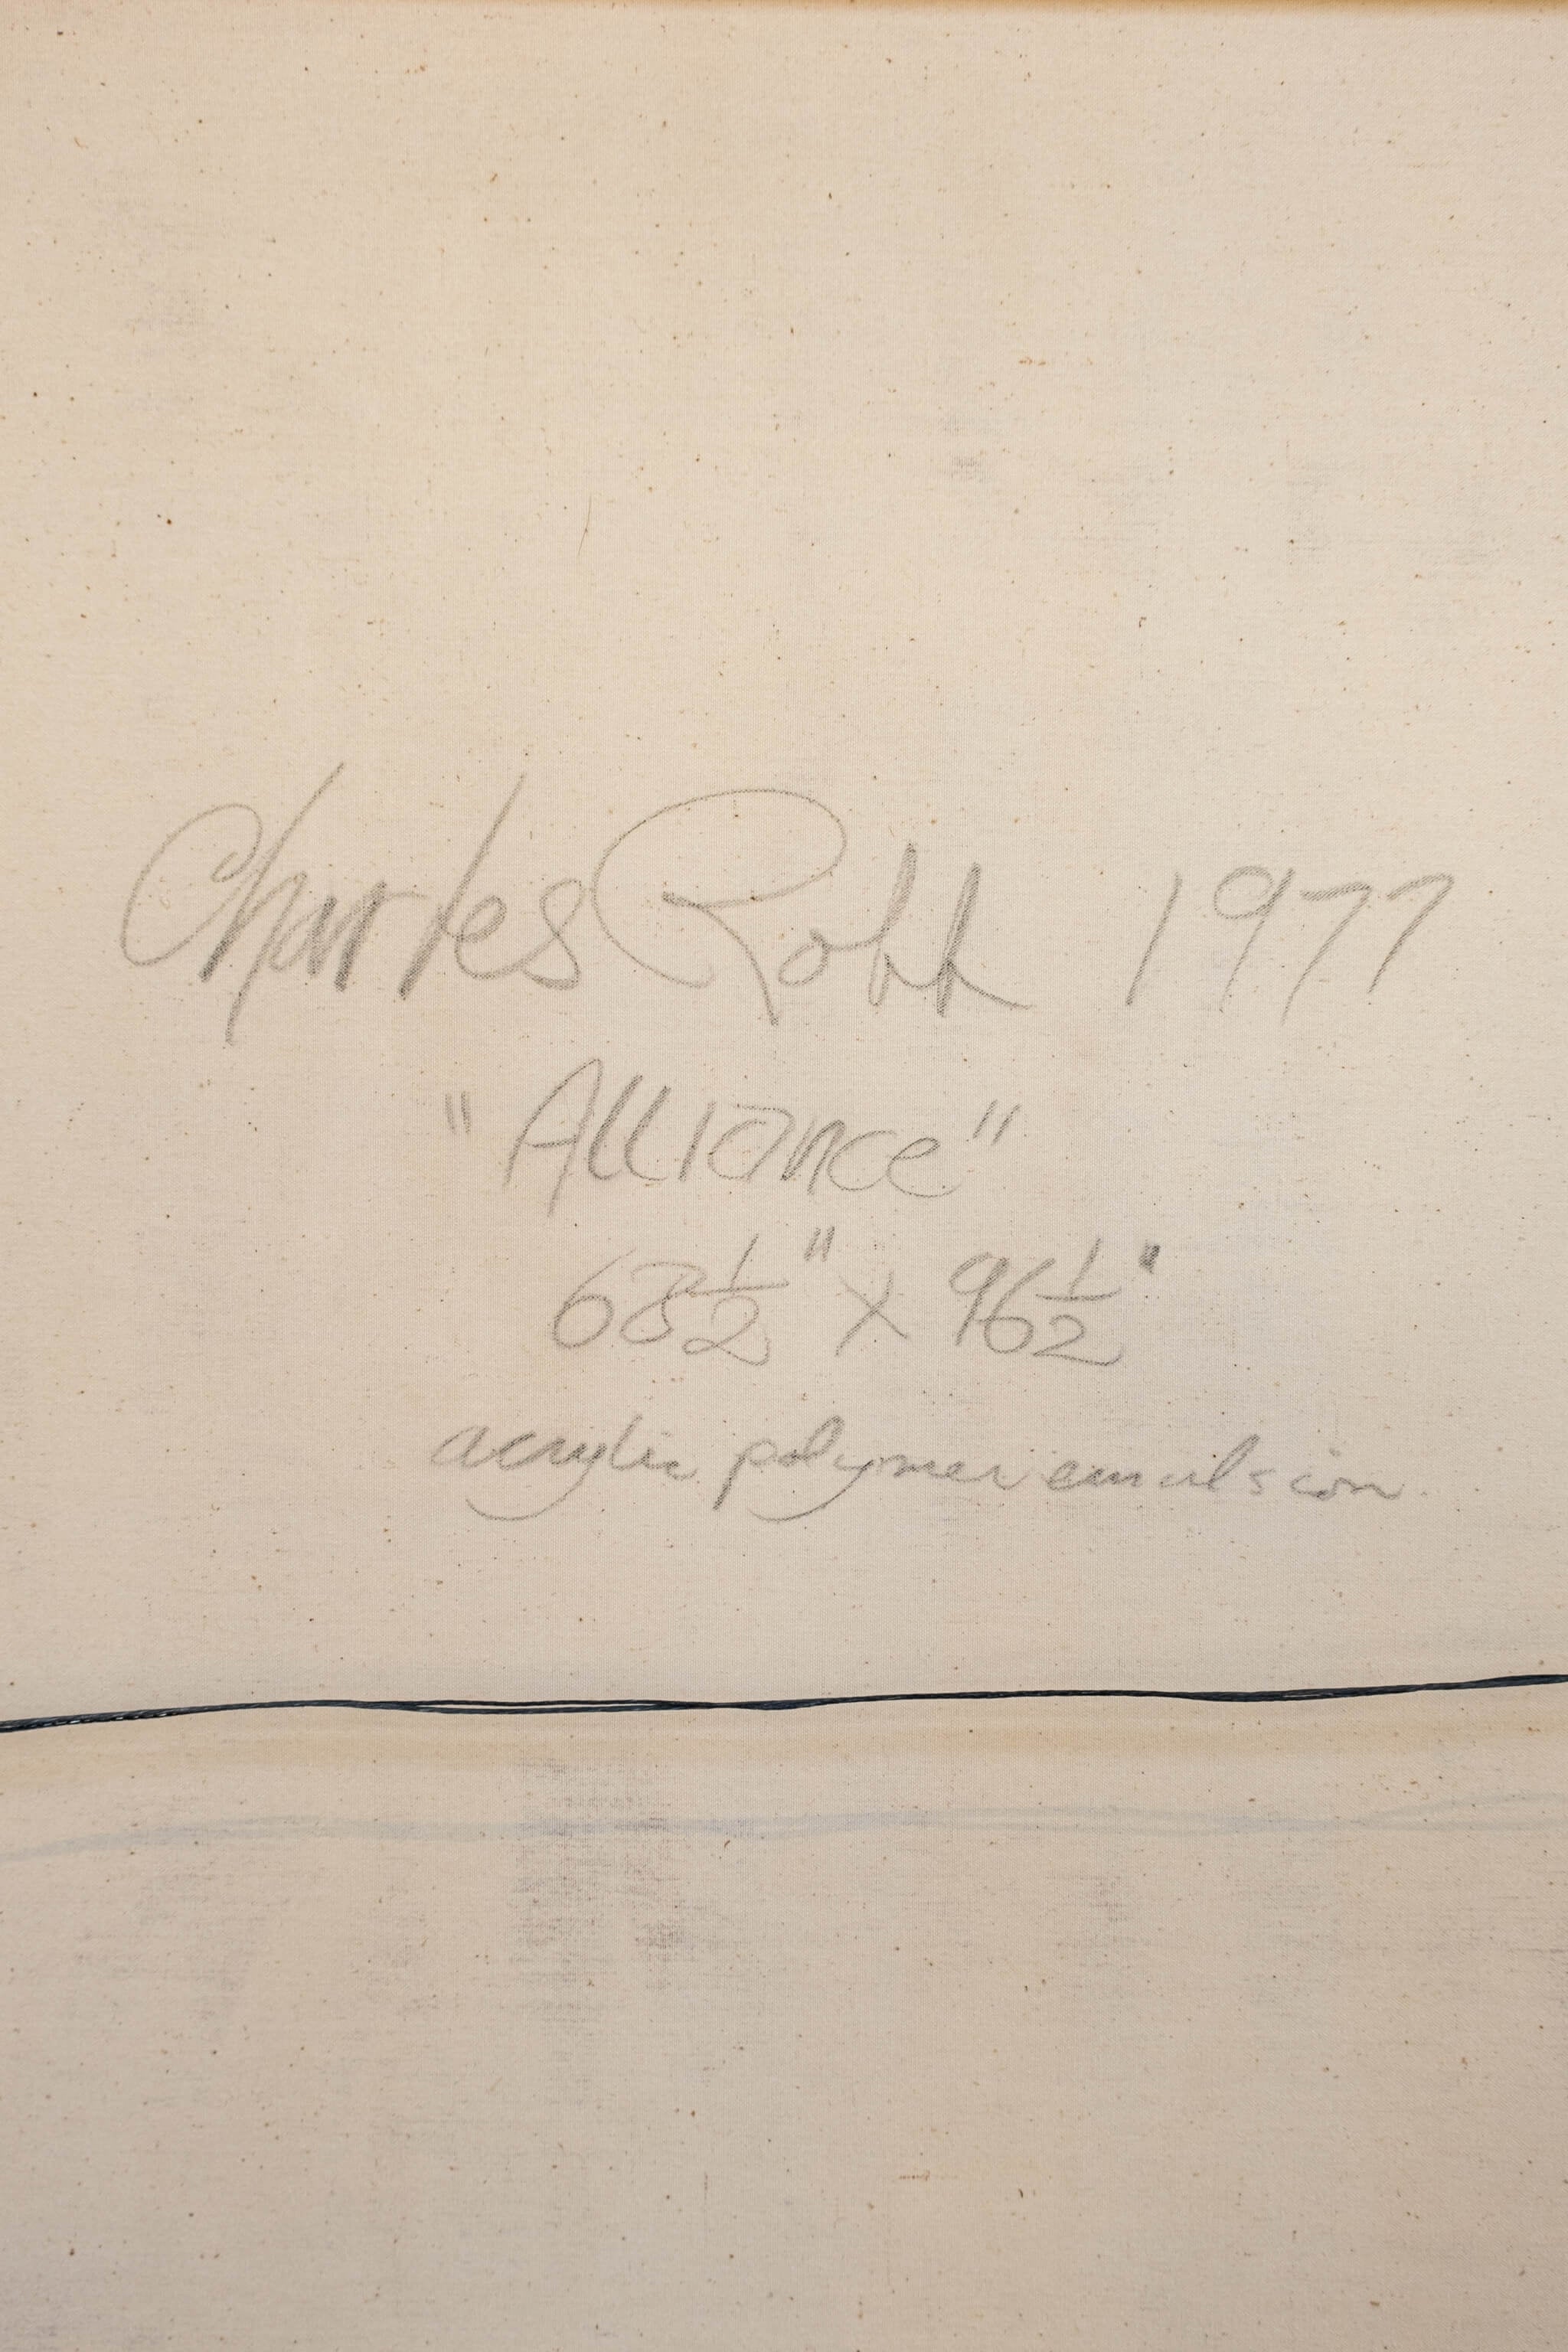 Charles Robb 1977
"Alliance"
68 1/2" x 96 1/2"
acrylic polymer emulsion